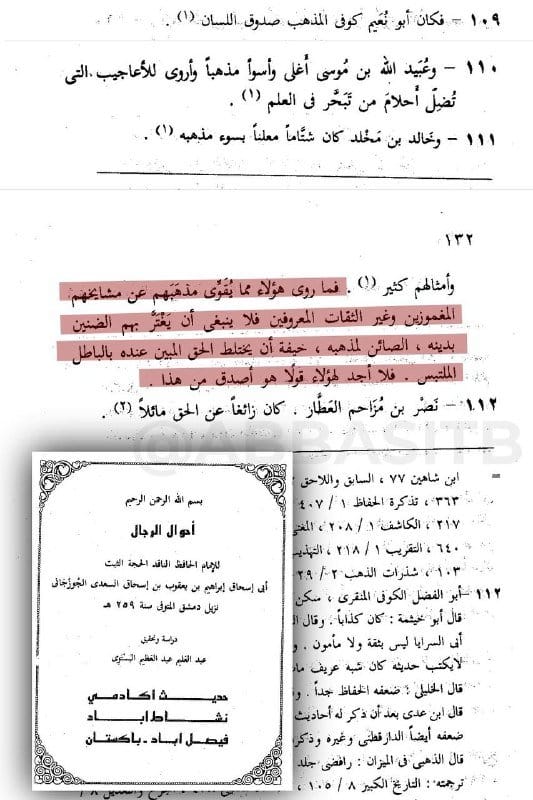 ١٠٩ - فكان أبو نُعَيم كوفى المذهب صدوق اللسان (١) .
١١٠ - وعُبَيد الله بن مُوسى أَغلى وأسوأ مذهباً وأروى للأعاجيب التى
تُضِلّ أَحلامَ من تَبَحَّر فى العلم (١) .
١١١ - وخالد بن مَخْلد كان شتَّاماً معلناً بسوء مذهبه (١) .
١٣٢
وأمثالهم كثير (١) . فما روى هؤلاء مما يُقَوِّى مذهَبَهم عن مشايخهم
المغموزين وغير الثقات المعروفين فلا ينبغى أن يَغْتَرَّ بهم الضنين
بدينه ، الصائن لمذهبه ، خيفة أن يختلط الحق المبين عنده بالباطل
الملتبس . فلا أجد لهؤلاء قولًا هو أصدق من هذا .
١١٢ - نَصْر بن مُزَاحم العَطَّار . كان زائغاً عن الحق مائلاً (٢) .
@ABBASITB
ابن شاهين ٧٧ ، السابق واللاحق
٣٦٣ ، تذكرة الحفاظ ١ / ٤٠٧
٢١٧ ، الكاشف ١ / ٢٠٨ ،
٦٤٠ ، التقريب ١ / ٢١٨ ،
١٠٣ ، شذرات الذهب ٢ / ٢٩
١١٢ - أبو الفضل الكوفى المنقرى ، سكن
قال أبو خيثمة : كان كذاباً . وقال
أبى السرايا ليس بثقة ولا مأمون .
لايكتب حديثه كان شبه عريف
قال الخليلى : ضعفه الحفاظ جداً .
قال ابن عدى بعد أن ذكر له أحاديث
ضعفه أيضاً الدارقطنى وغيره وذكره
قال الذهبى فى الميزان : رافضى جلد
ترجمته : التاريخ الكبير ٨ / ١٠٥ ،
بسم الله الرحمن الرحيم
أحوال الرجال
للإمام الحافظ الناقد الحجة الثبت
أبى إسحاق إبراهيم بن يعقوب بن إسحاق السعدى الجُوزَجَانى
نزيل دمشق المتوفى سنة ٢٥٩ هـ
دراسة وتحقيق
عبد العليم عبد العظيم البَستَوى
حديث اكادمي
نشاط اباد
فيصل اباد - باكستان